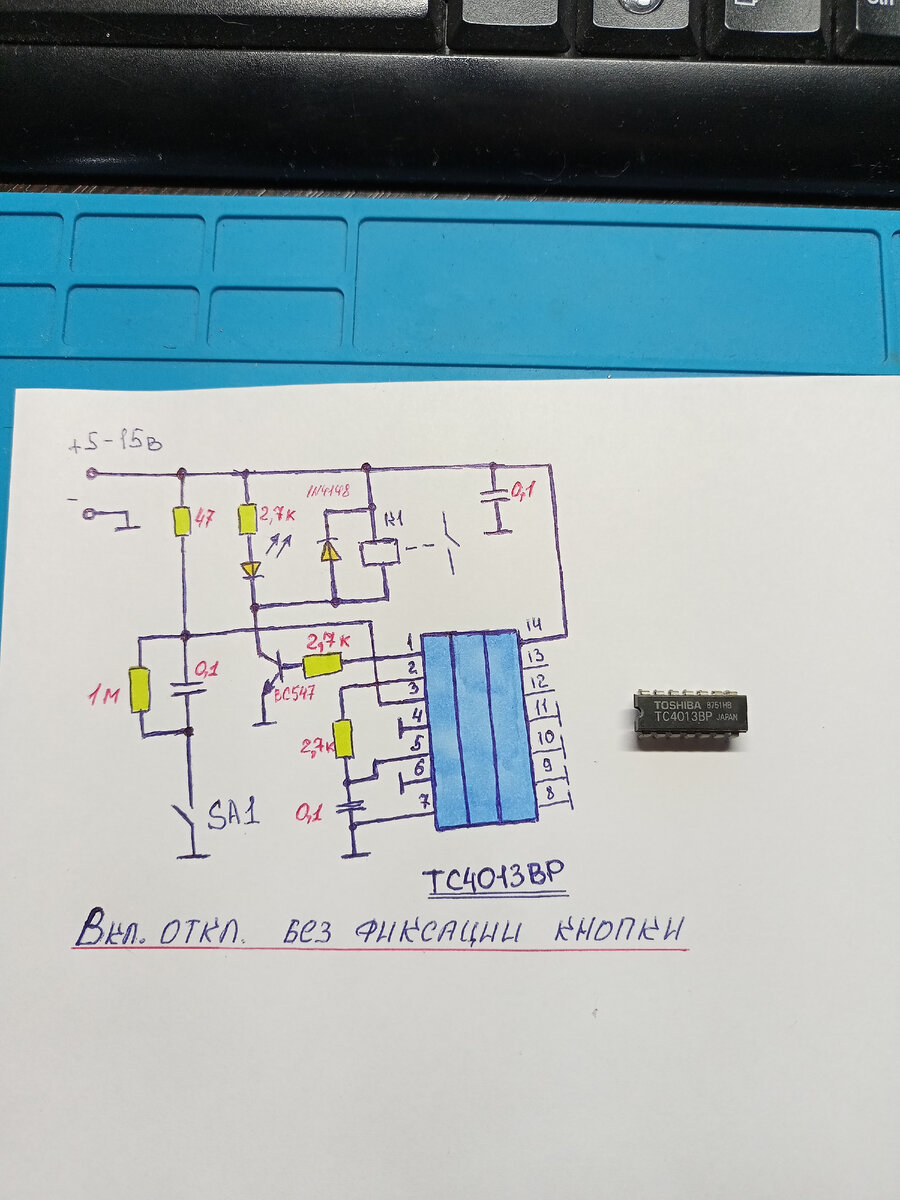 +5-15в
-
47
2,7к
1N4148
R1
0,1
14
1M
0,1
2,7к
BC547
1
2
3
4
5
6
7
13
12
11
10
9
8
2,7к
0,1
SA1
TC4013BP
Вкл. ОТКЛ. БЕЗ ФИКСАЦИИ КНОПКИ
TOSHIBA 8751HB
TC4013BP JAPAN